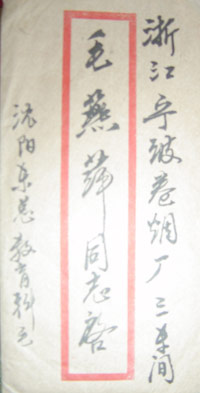 浙江宁波卷烟厂三车间
毛燕萍同志启
沈阳东基教育科毛